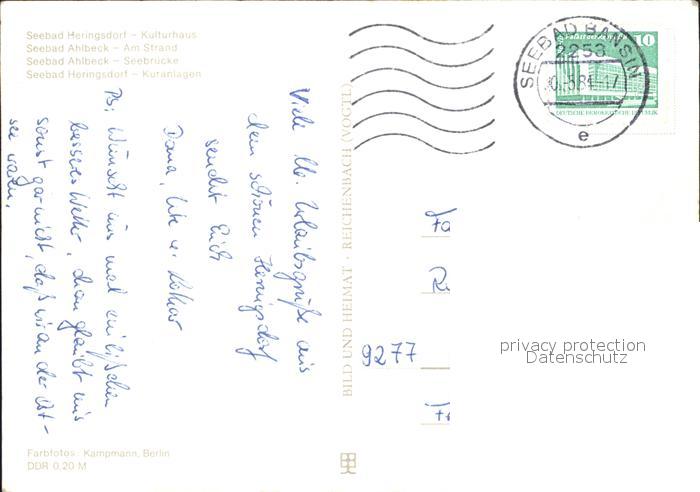 Seebad Heringsdorf – Kulturhaus
Seebad Ahlbeck – Am Strand
Seebad Ahlbeck – Seebrücke
Seebad Heringsdorf – Kuranlagen
Viele lb. Urlaubsgrüße aus
dem schönen Heringsdorf
sendet Euch
Dana, Ute u. Lothar
PS. Wünscht uns mal ein bißchen
besseres Wetter, man glaubt uns
sonst gar nicht, daß wir an der Ost-
see waren.
Farbfotos: Kampmann, Berlin
DDR 0,20 M
BILD UND HEIMAT · REICHENBACH (VOGTL)
SEEBAD BANSIN
2253
e
10
DEUTSCHE DEMOKRATISCHE REPUBLIK
9277
privacy protection
Datenschutz